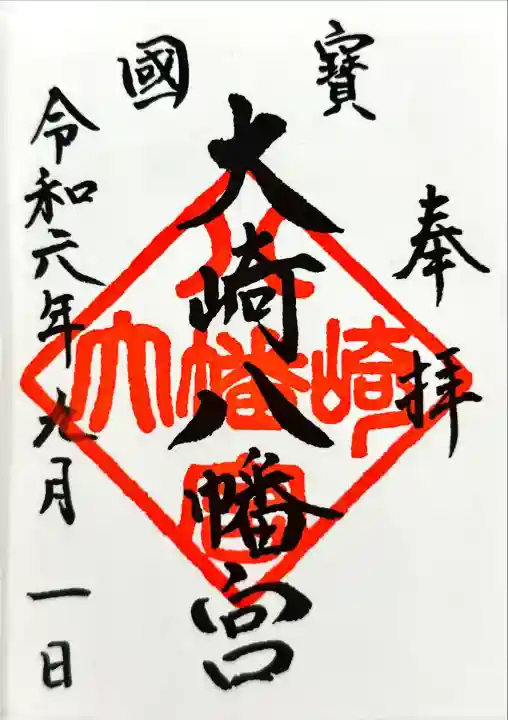 奉拝
國寶
大崎八幡宮
令和六年九月一日
大崎八幡宮